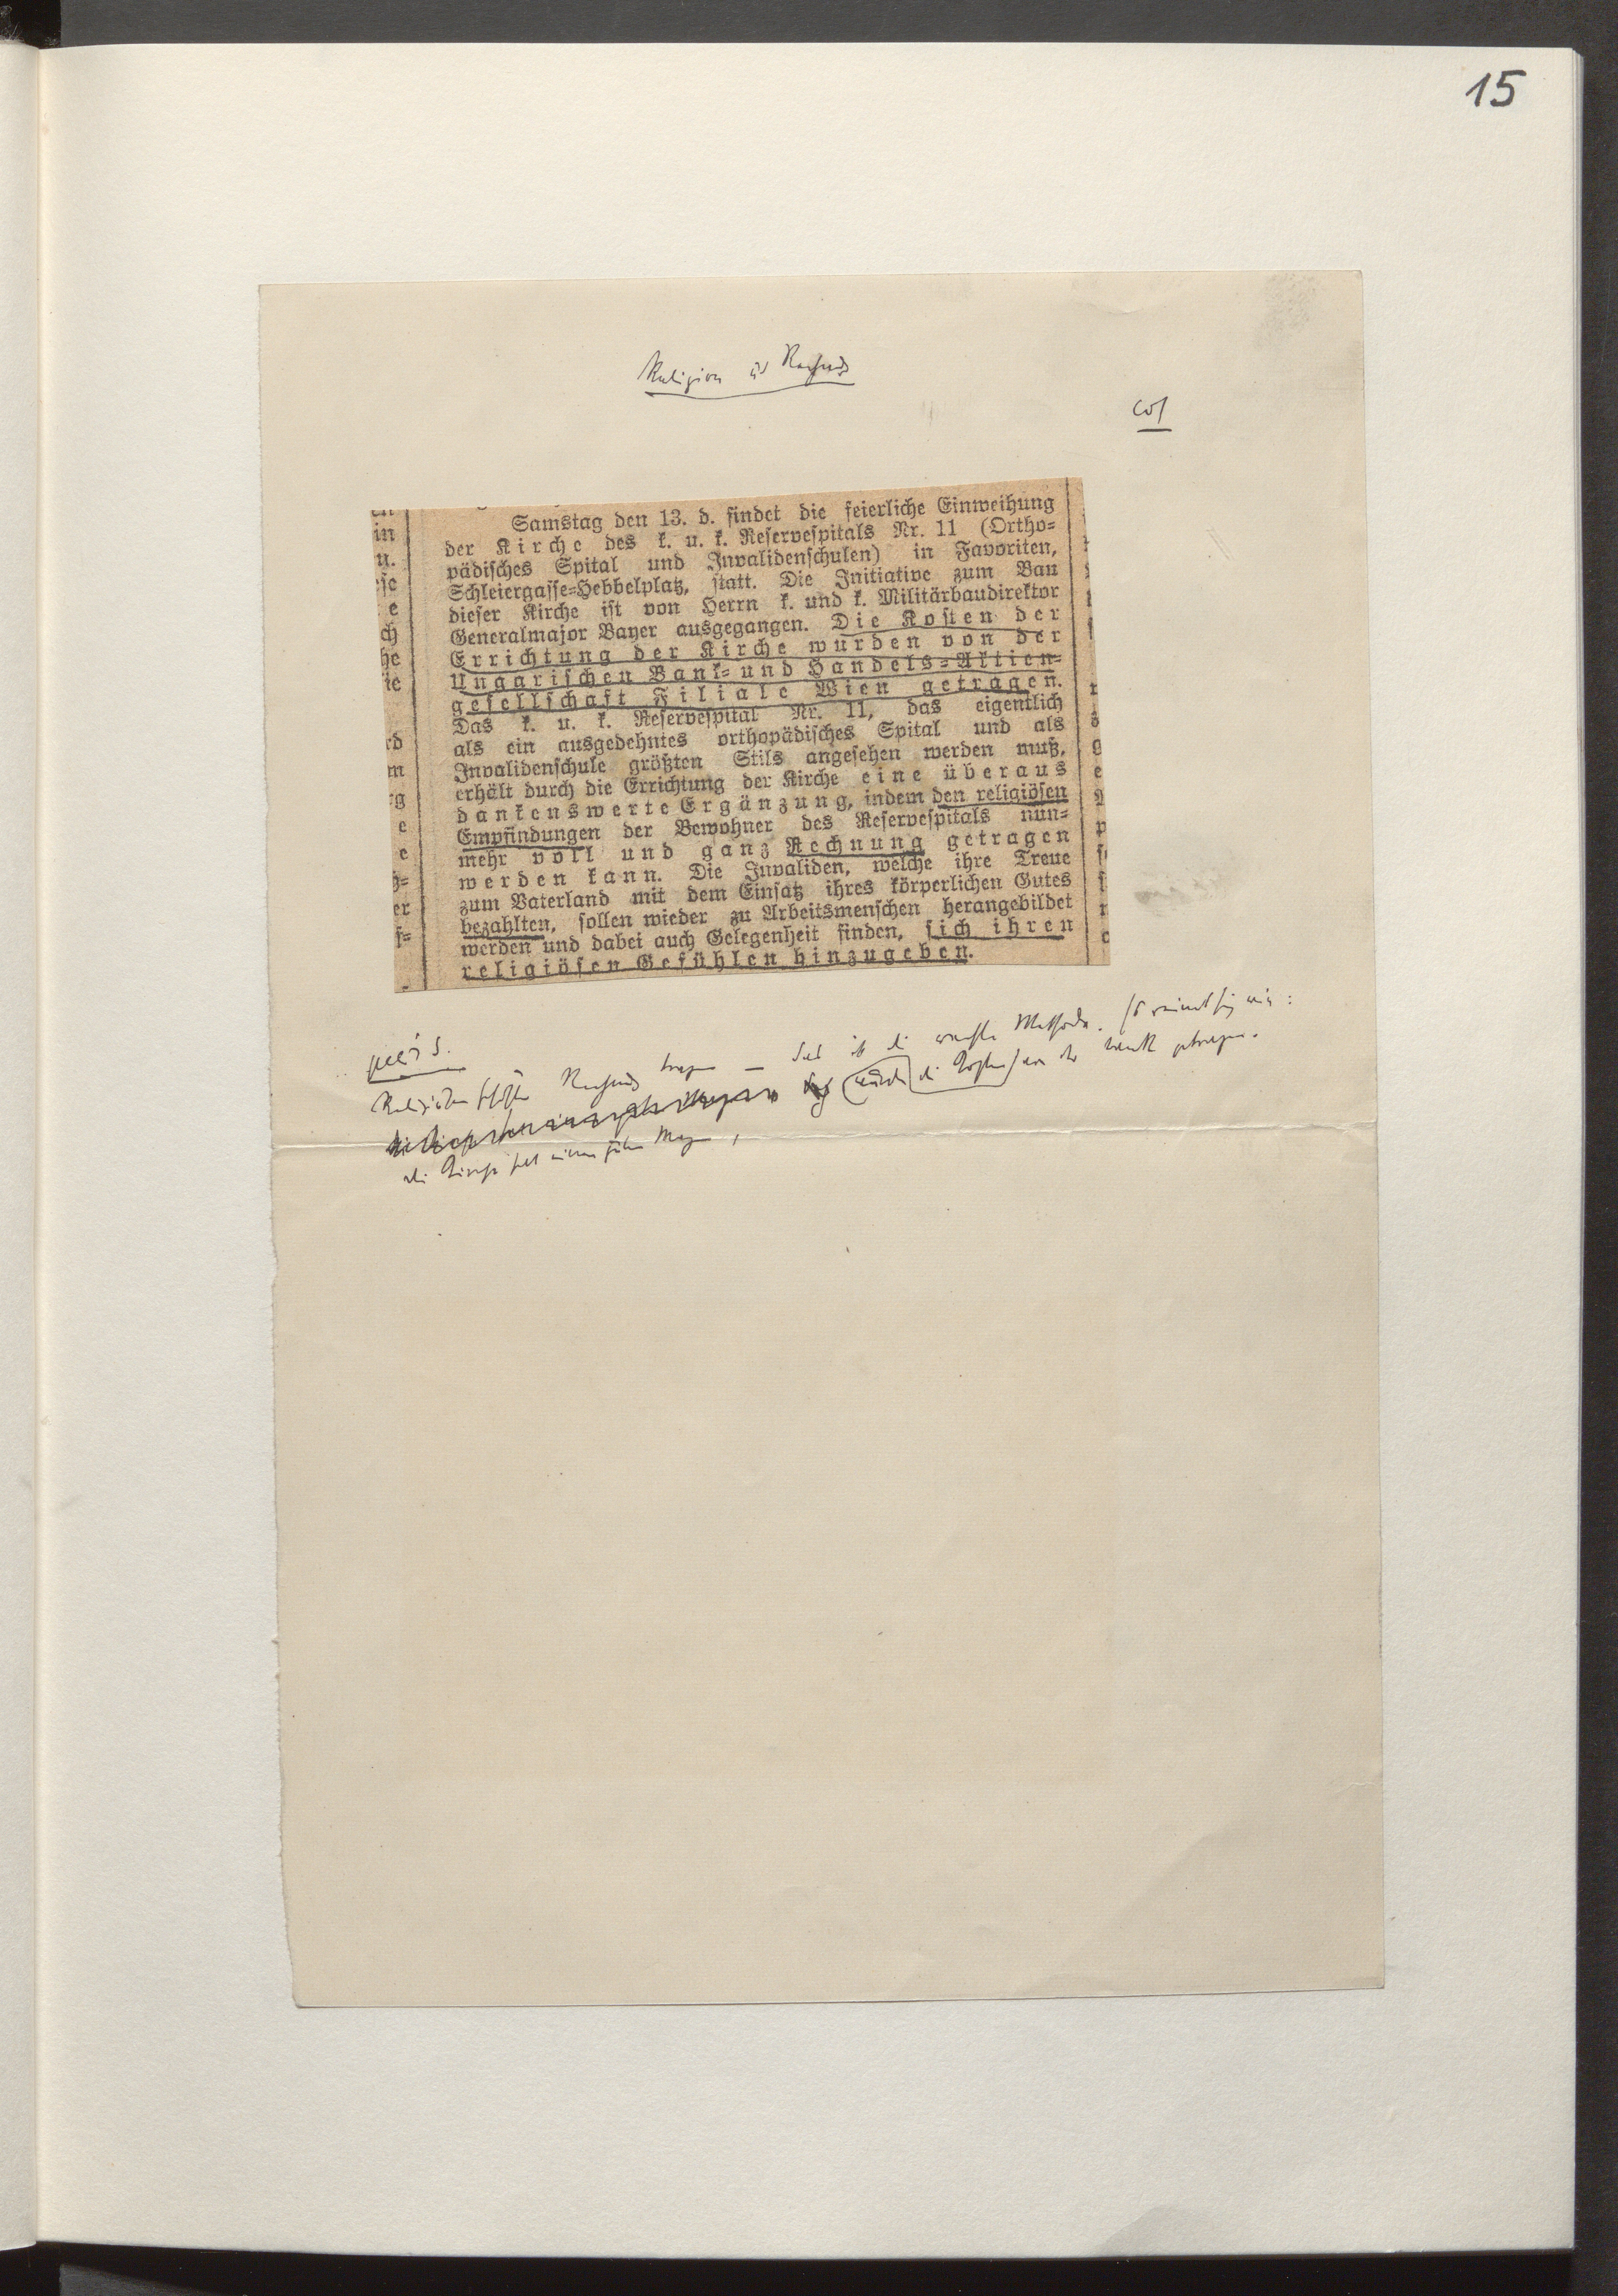 15
Religion u. Rechnung
Samstag den 13. d. findet die feierliche Einweihung
der Kirche des k. u. k. Reservespitals Nr. 11 (Ortho-
pädisches Spital und Invalidenschulen) in Favoriten,
Schleiergasse-Hebbelplatz, statt. Die Initiative zum Bau
dieser Kirche ist von Herrn k. und k. Militärbaudirektor
Generalmajor Bayer ausgegangen. Die Kosten der
Errichtung der Kirche wurden von der
Ungarischen Bank- und Handels-Aktien-
gesellschaft Filiale Wien getragen.
Das k. u. k. Reservespital Nr. 11, das eigentlich
als ein ausgedehntes orthopädisches Spital und als
Invalidenschule größten Stils angesehen werden muß,
erhält durch die Errichtung der Kirche eine überaus
dankenswerte Ergänzung, indem den religiösen
Empfindungen der Bewohner des Reservespitals nun-
mehr voll und ganz Rechnung getragen
werden kann. Die Invaliden, welche ihre Treue
zum Vaterland mit dem Einsatz ihres körperlichen Gutes
bezahlten, sollen wieder zu Arbeitsmenschen herangebildet
werden und dabei auch Gelegenheit finden, sich ihren
religiösen Gefühlen hinzugeben.
Rechnung tragen — das ist die
die Kosten von der Bank getragen.
die Kirche hat einen guten Magen,